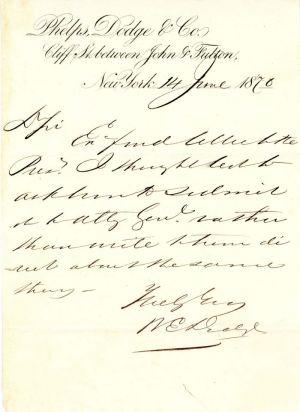 Phelps, Dodge & Co.
Cliff St. between John & Fulton,
New York 14 June 1870
D Sir
find letter to the
Pres. I thought best to
ask him to submit
it to Atty Genl. rather
than write to him di
rect about the same
thing —
Truly Yours
W E Dodge